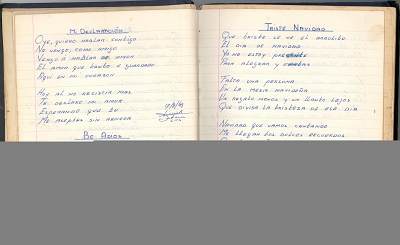 Mi DEclARACiÓN
Oye, quiero hablar contigo
No vengo, como amigo
Vengo a hablar de amor
El amor que tanto e guardado
Aqui en mi corazon
Hoy al no resistir mas
Te declaro mi amor
Esperando que tu
Me aceptes sin rencor
TRISTE NAVIDAD
Que triste se ve el arbolito
El dia de navidad
Ya no estas presente
Para alegrar y
Falta una persona
En la mesa navideña
Un regalo menos y un llanto lejos
Que divisa la tristeza de ese dia
Navidad que vamos cantando
Me llegan los dulces recuerdos